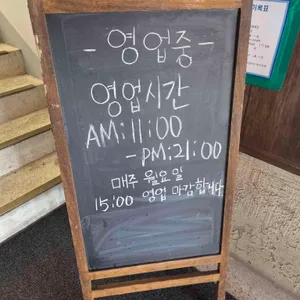 - 영업중 -
영업시간
AM:11:00
- PM:21:00
매주 월요일
15:00 영업 마감합니다